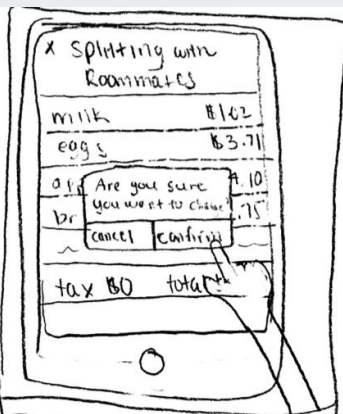 x Splitting with
Roommates
milk $1.62
eggs $3.71
.10
br .75
Are you sure
you want to
cancel confirm
tax $0 total